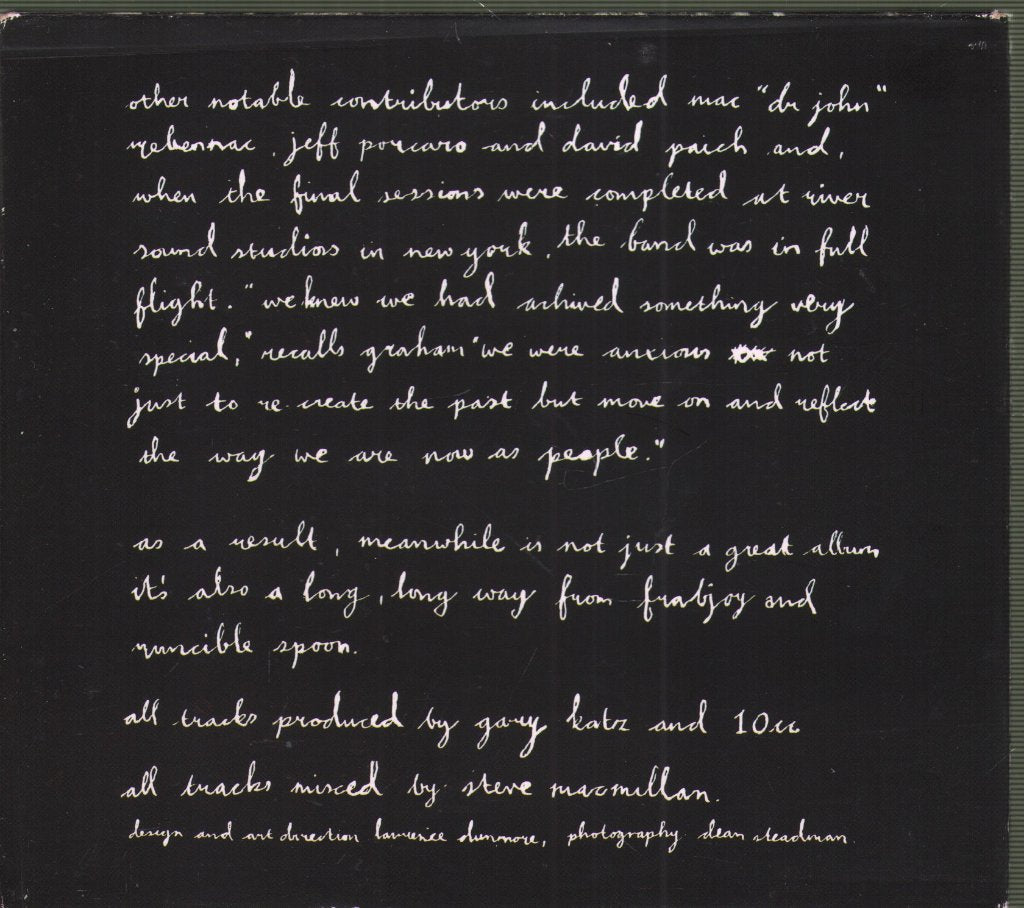 other notable contributors included mac "dr john"
rebennac, jeff porcaro and david paich and,
when the final sessions were completed at river
sound studios in new york, the band was in full
flight. "we knew we had achived something very
special," recalls graham "we were anxious not
just to re-create the past but move on and reflect
the way we are now as people."
as a result, meanwhile is not just a great album
it's also a long, long way from frabjoy and
runcible spoon.
all tracks produced by gary katz and 10cc
all tracks mixed by steve macmillan.
design and art direction lawrence dunmore, photography dean steadman.